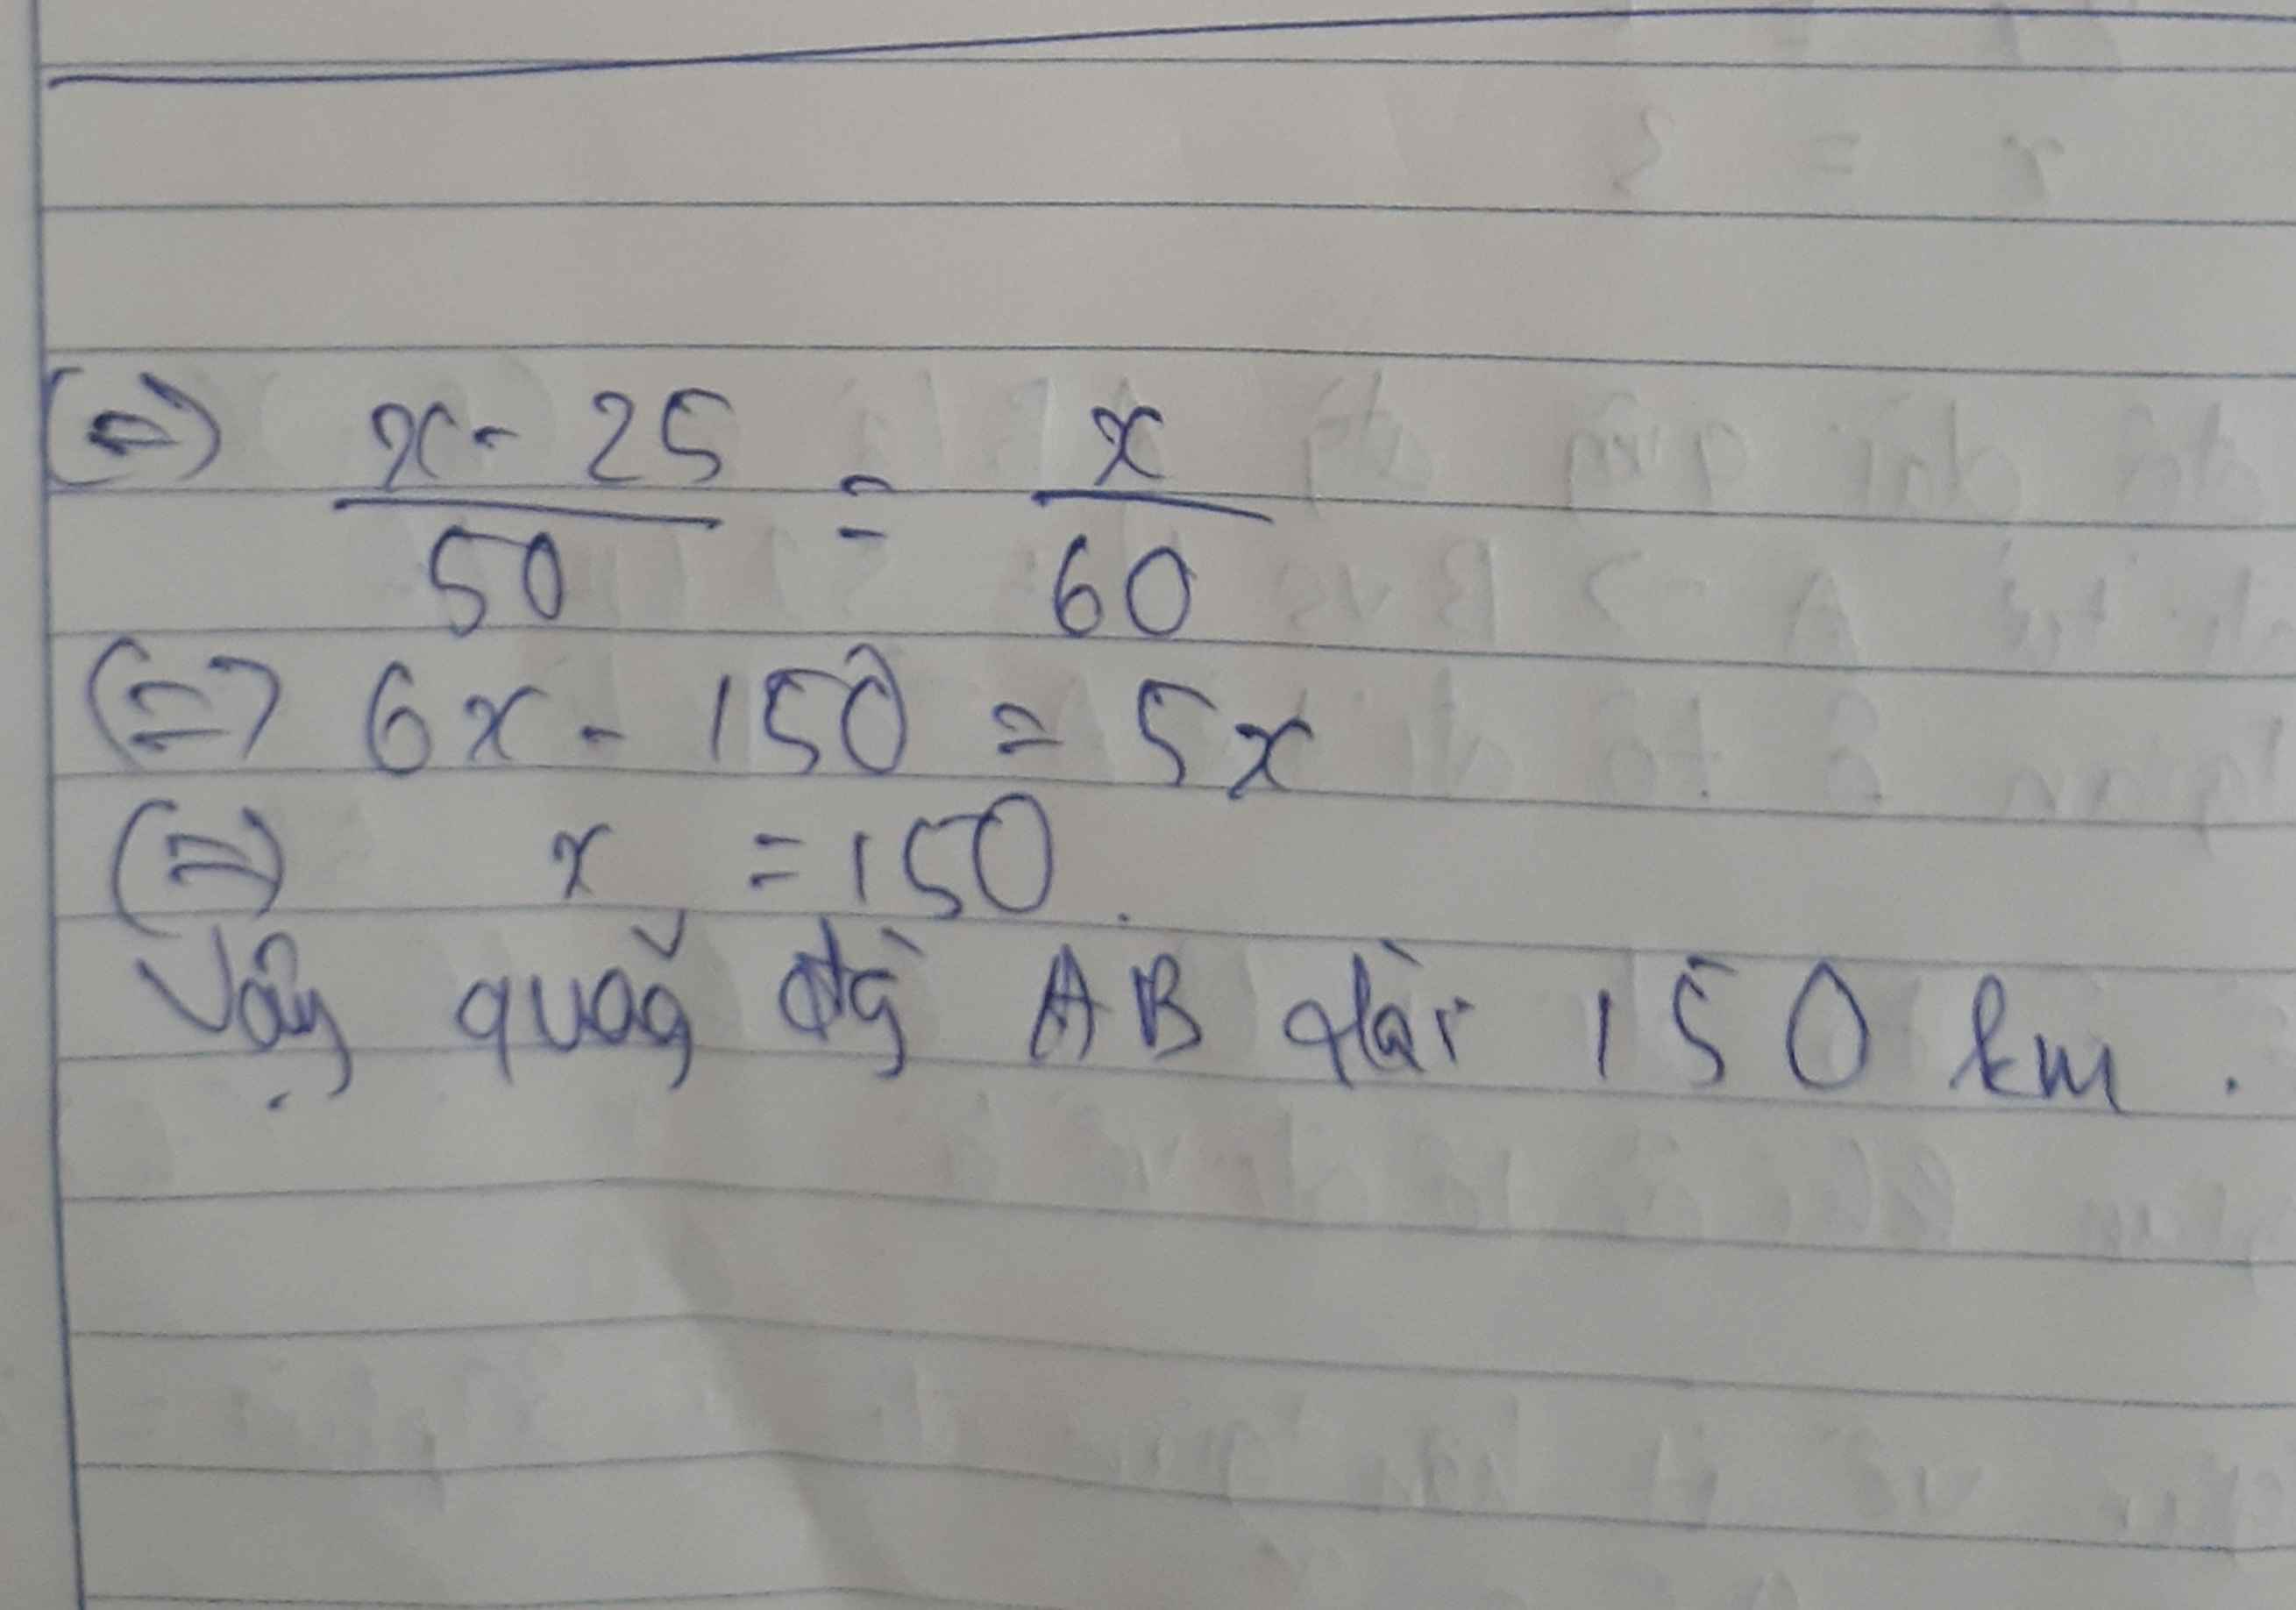 (=) x - 25 / 50 = x / 60
(=) 6x - 150 = 5x
(=) x = 150.
Vậy quãg đg̀ AB dài 150 km.